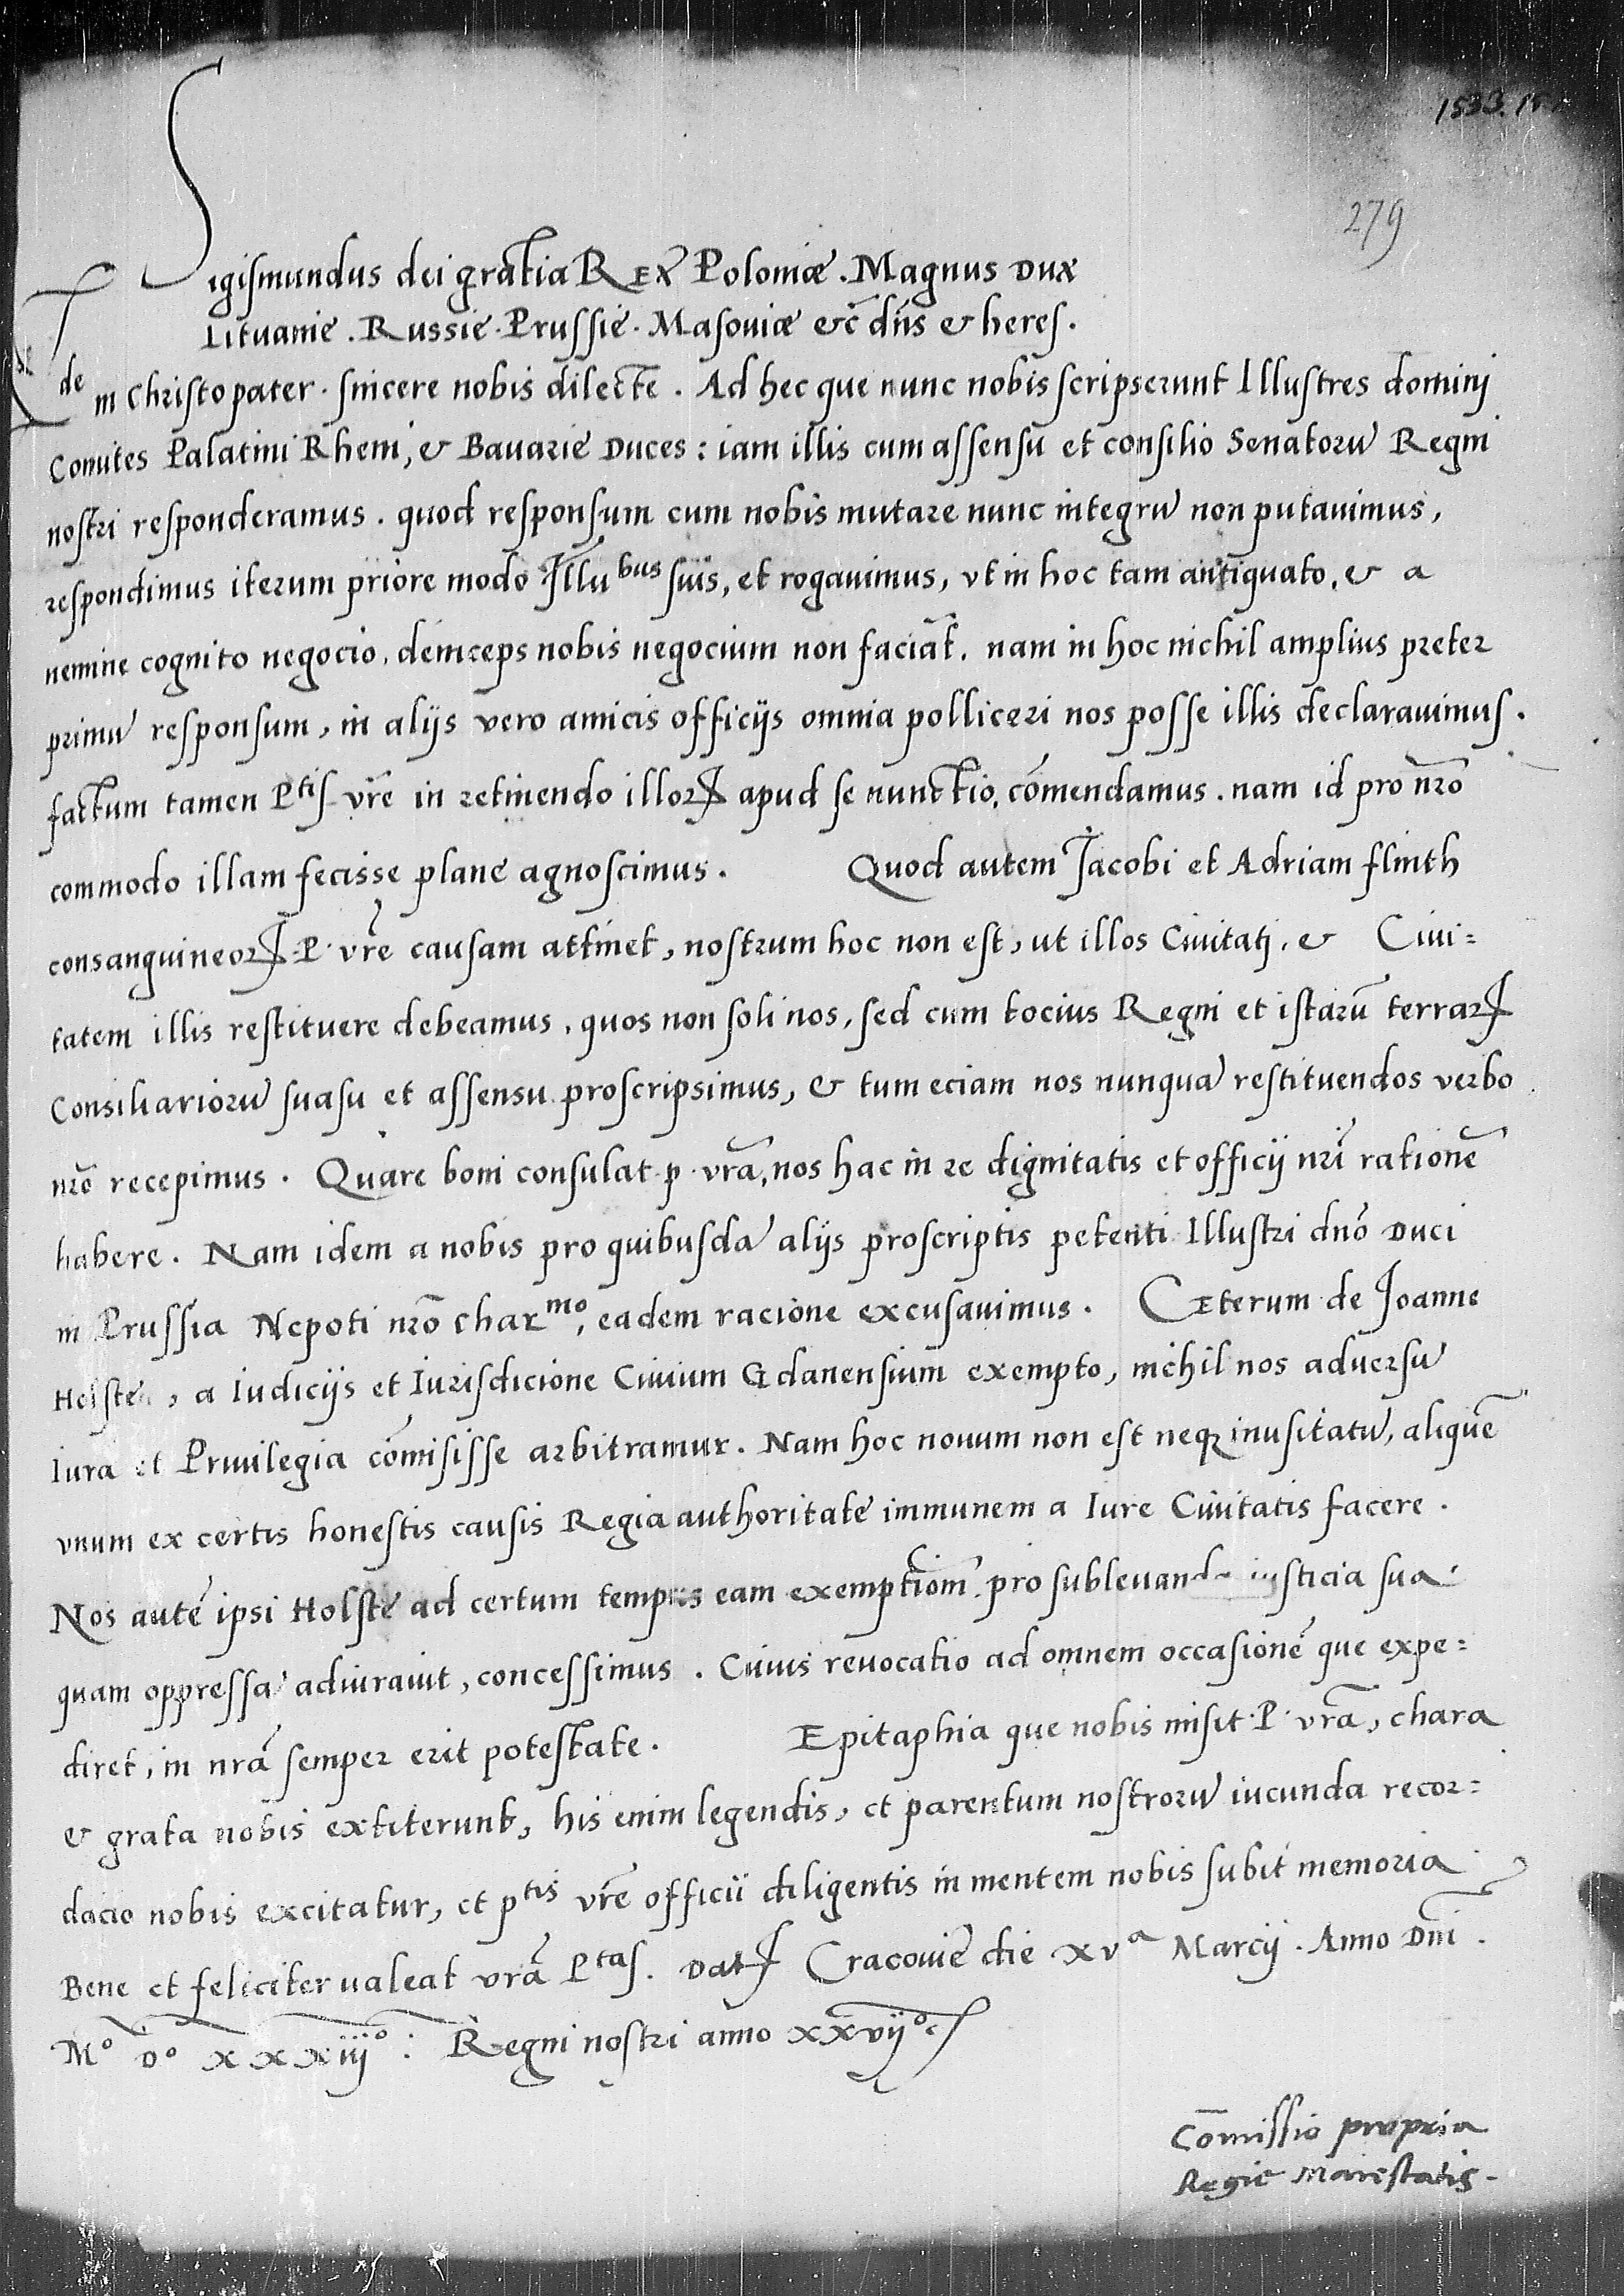 1533. 15.
279
Sigismundus dei gratia Rex Poloniæ. Magnus Dux
Lituaniæ. Russie. Prussie. Masoviæ etc̄ dn̄s & heres.
Rde in Christo pater. sincere nobis dilecte. Ad hec que nunc nobis scripserunt Illustres dominj
Comites Palatini Rheni, & Bavarie Duces: iam illis cum assensu et consilio Senatorū Regni
nostri responderamus. quod responsum cum nobis mutare nunc integrū non putavimus,
respondimus iterum priore modo Illu^bus suis, et rogavimus, vt in hoc tam antiquato, & a
nemine cognito negocio, deinceps nobis negocium non faciāt. nam in hoc nichil amplius preter
primū responsum, in alijs vero amicis officijs omnia polliceri nos posse illis declaravimus.
factum tamen P^tis vrē in retinendo illorꝝ apud se nunctio, cōmendamus. nam id pro nrō
commodo illam fecisse plane agnoscimus. Quod autem Jacobi et Adriani flinth
consanguineorꝝ P. vrē causam attinet, nostrum hoc non est, ut illos Civitatj, & Civi=
tatem illis restituere debeamus, quos non soli nos, sed cum tocius Regni et istarū terrarꝝ
Consiliariorū suasu et assensu proscripsimus, & tum eciam nos nunquā restituendos verbo
nrō recepimus. Quare boni consulat p. vrā, nos hac in re dignitatis et officij nrī rationē
habere. Nam idem a nobis pro quibusdā alijs proscriptis petenti Illustri dnō Duci
in Prussia Nepoti nrō char^mo, eadem racione excusavimus. Cæterum de Joanne
Holsten, a Iudicijs et Iurisdicione Civium Gdanensium exempto, nichil nos adversū
Iura et Privilegia cōmisisse arbitramur. Nam hoc novum non est neqꝫ inusitatū, aliquē
vnum ex certis honestis causis Regia authoritate immunem a Iure Civitatis facere.
Nos autē ipsi Holstē ad certum tempus eam exemptionē, pro sublevanda iusticia sua
quam oppressā adiuravit, concessimus. Cuius revocatio ad omnem occasionē que expe=
diret, in nrā semper erit potestate. Epitaphia que nobis misit P. vrā, chara
& grata nobis extiterunt, his enim legendis, et parentum nostrorū iucunda recor=
dacio nobis excitatur, et p^tis vrē officii diligentis in mentem nobis subit memoria
Bene et feliciter valeat vrā P^tas. Datꝝ Cracovie die xv^a Marcij. Anno Dnī.
M° D° xxxiij°: Regni nostri anno xxvij°
Cōmissio propria
Regie Maiestatis.